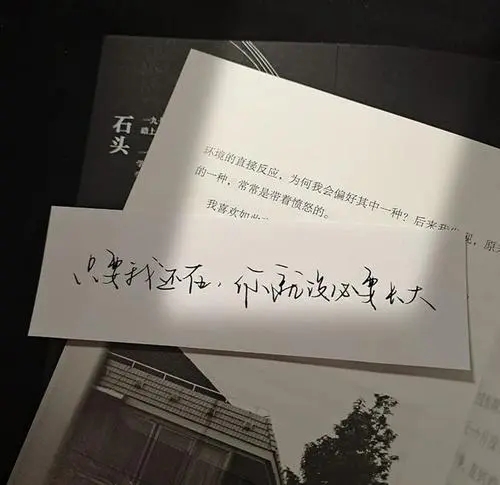 石头
环境的直接反应，为何我会偏好其中一种？后来我发现，原来
的一种，常常是带着愤怒的。
我喜欢如
只要我还在，你就没必要长大